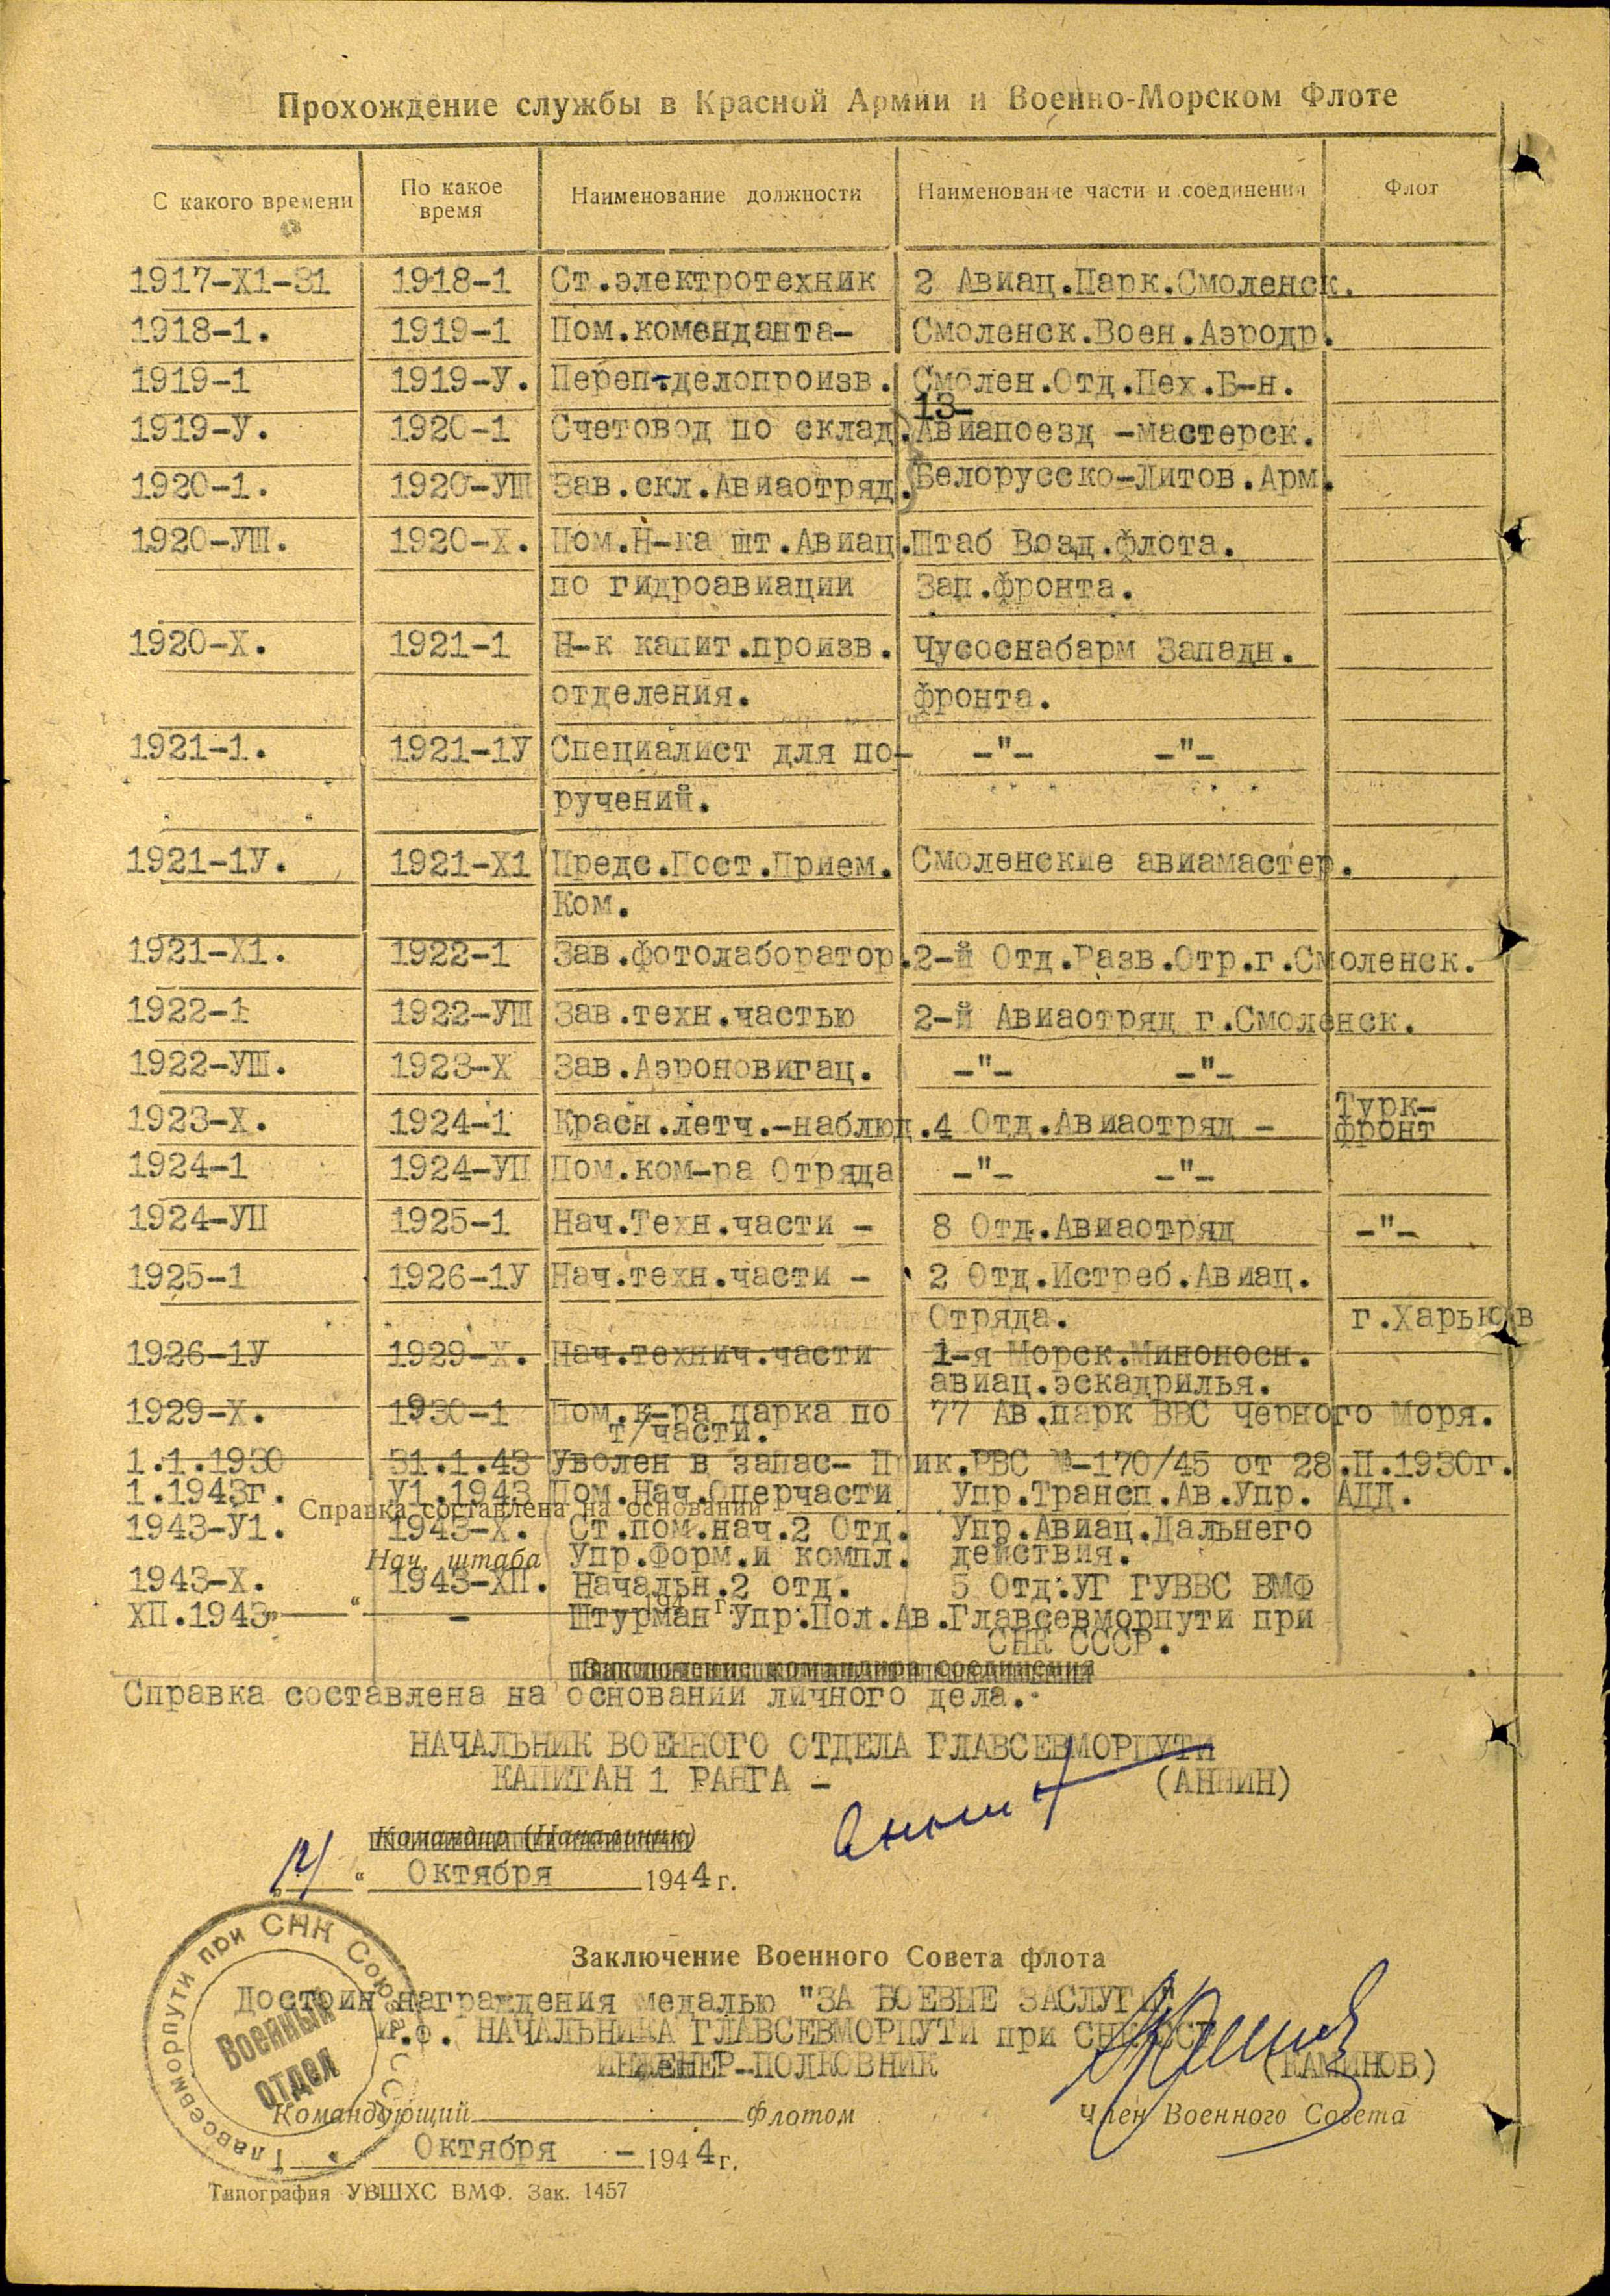 Прохождение службы в Красной Армии и Военно-Морском Флоте
С какого времени По какое время Наименование должности Наименование части и соединения Флот
1917-X1-31 1918-1 Ст.электротехник 2 Авиац.Парк.Смоленск.
1918-1. 1919-1 Пом.коменданта- Смоленск.Воен.Аэродр.
1919-1 1919-У. Переп-делопроизв. Смолен.Отд.Пех.Б-н.
13-
1919-У. 1920-1 Счетовод по склад. Авиапоезд -мастерск.
1920-1. 1920-УШ Зав.скл.Авиаотряд. Белорусско-Литов.Арм.
1920-УШ. 1920-X. Пом.Н-ка шт.Авиац. Штаб Возд.флота.
по гидроавиации Зап.фронта.
1920-X. 1921-1 Н-к капит.произв. Чусоснабарм Западн.
отделения. фронта.
1921-1. 1921-1У Специалист для по- -"- -"-
ручений.
1921-1У. 1921-X1 Предс.Пост.Прием. Смоленские авиамастер.
Ком.
1921-X1. 1922-1 Зав.фотолаборатор. 2-й Отд.Разв.Отр.г.Смоленск.
1922-1 1922-УШ Зав.техн.частью 2-й Авиаотряд г.Смоленск.
1922-УШ. 1923-X Зав.Аэроновигац. -"- -"-
1923-X. 1924-1 Красн.летч.-наблюд. 4 Отд.Авиаотряд - Турк-
фронт
1924-1 1924-УП Пом.ком-ра Отряда -"- -"-
1924-УП 1925-1 Нач.Техн.части - 8 Отд.Авиаотряд -"-
1925-1 1926-1У Нач.техн.части - 2 Отд.Истреб.Авиац.
Отряда. г.Харьков
1926-1У 1929-X. Нач.технич.части 1-я Морск.Миноносн.
авиац.эскадрилья.
1929-X. 1930-1 Пом.к-ра парка по 77 Ав.парк ВВС Черного Моря.
т/части.
1.1.1930 31.1.43 Уволен в запас- Прик.РВС №-170/45 от 28.П.1930г.
1.1943г. У1.1943 Пом.Нач.Оперчасти Упр.Трансп.Ав.Упр. АДД.
Справка составлена на основании
1943-У1. 1943-X. Ст.пом.нач.2 Отд. Упр.Авиац.Дальнего
Нач. штаба Упр.Форм.и компл. действия.
1943-X. 1943-XП. Начальн.2 отд. 5 Отд.УГ ГУВВС ВМФ
XП.1943 - Штурман Упр.Пол.Ав.Главсевморпути при
194 г.
СНК СССР.
Заключение командира соединения
Справка составлена на основании личного дела.
НАЧАЛЬНИК ВОЕННОГО ОТДЕЛА ГЛАВСЕВМОРПУТИ
КАПИТАН 1 РАНГА - (АННИН)
Командир (Начальник)
" Октября 1944 г.
Заключение Военного Совета флота
Достоин награждения медалью "ЗА БОЕВЫЕ ЗАСЛУГИ"
И.о. НАЧАЛЬНИКА ГЛАВСЕВМОРПУТИ при СНК СССР
ИНЖЕНЕР-ПОЛКОВНИК (КАМИНОВ)
Командующий Флотом Член Военного Совета
Октября - 1944 г.
Главсевморпути при СНК Союза ССР
Военный отдел
Типография УВШХС ВМФ. Зак. 1457